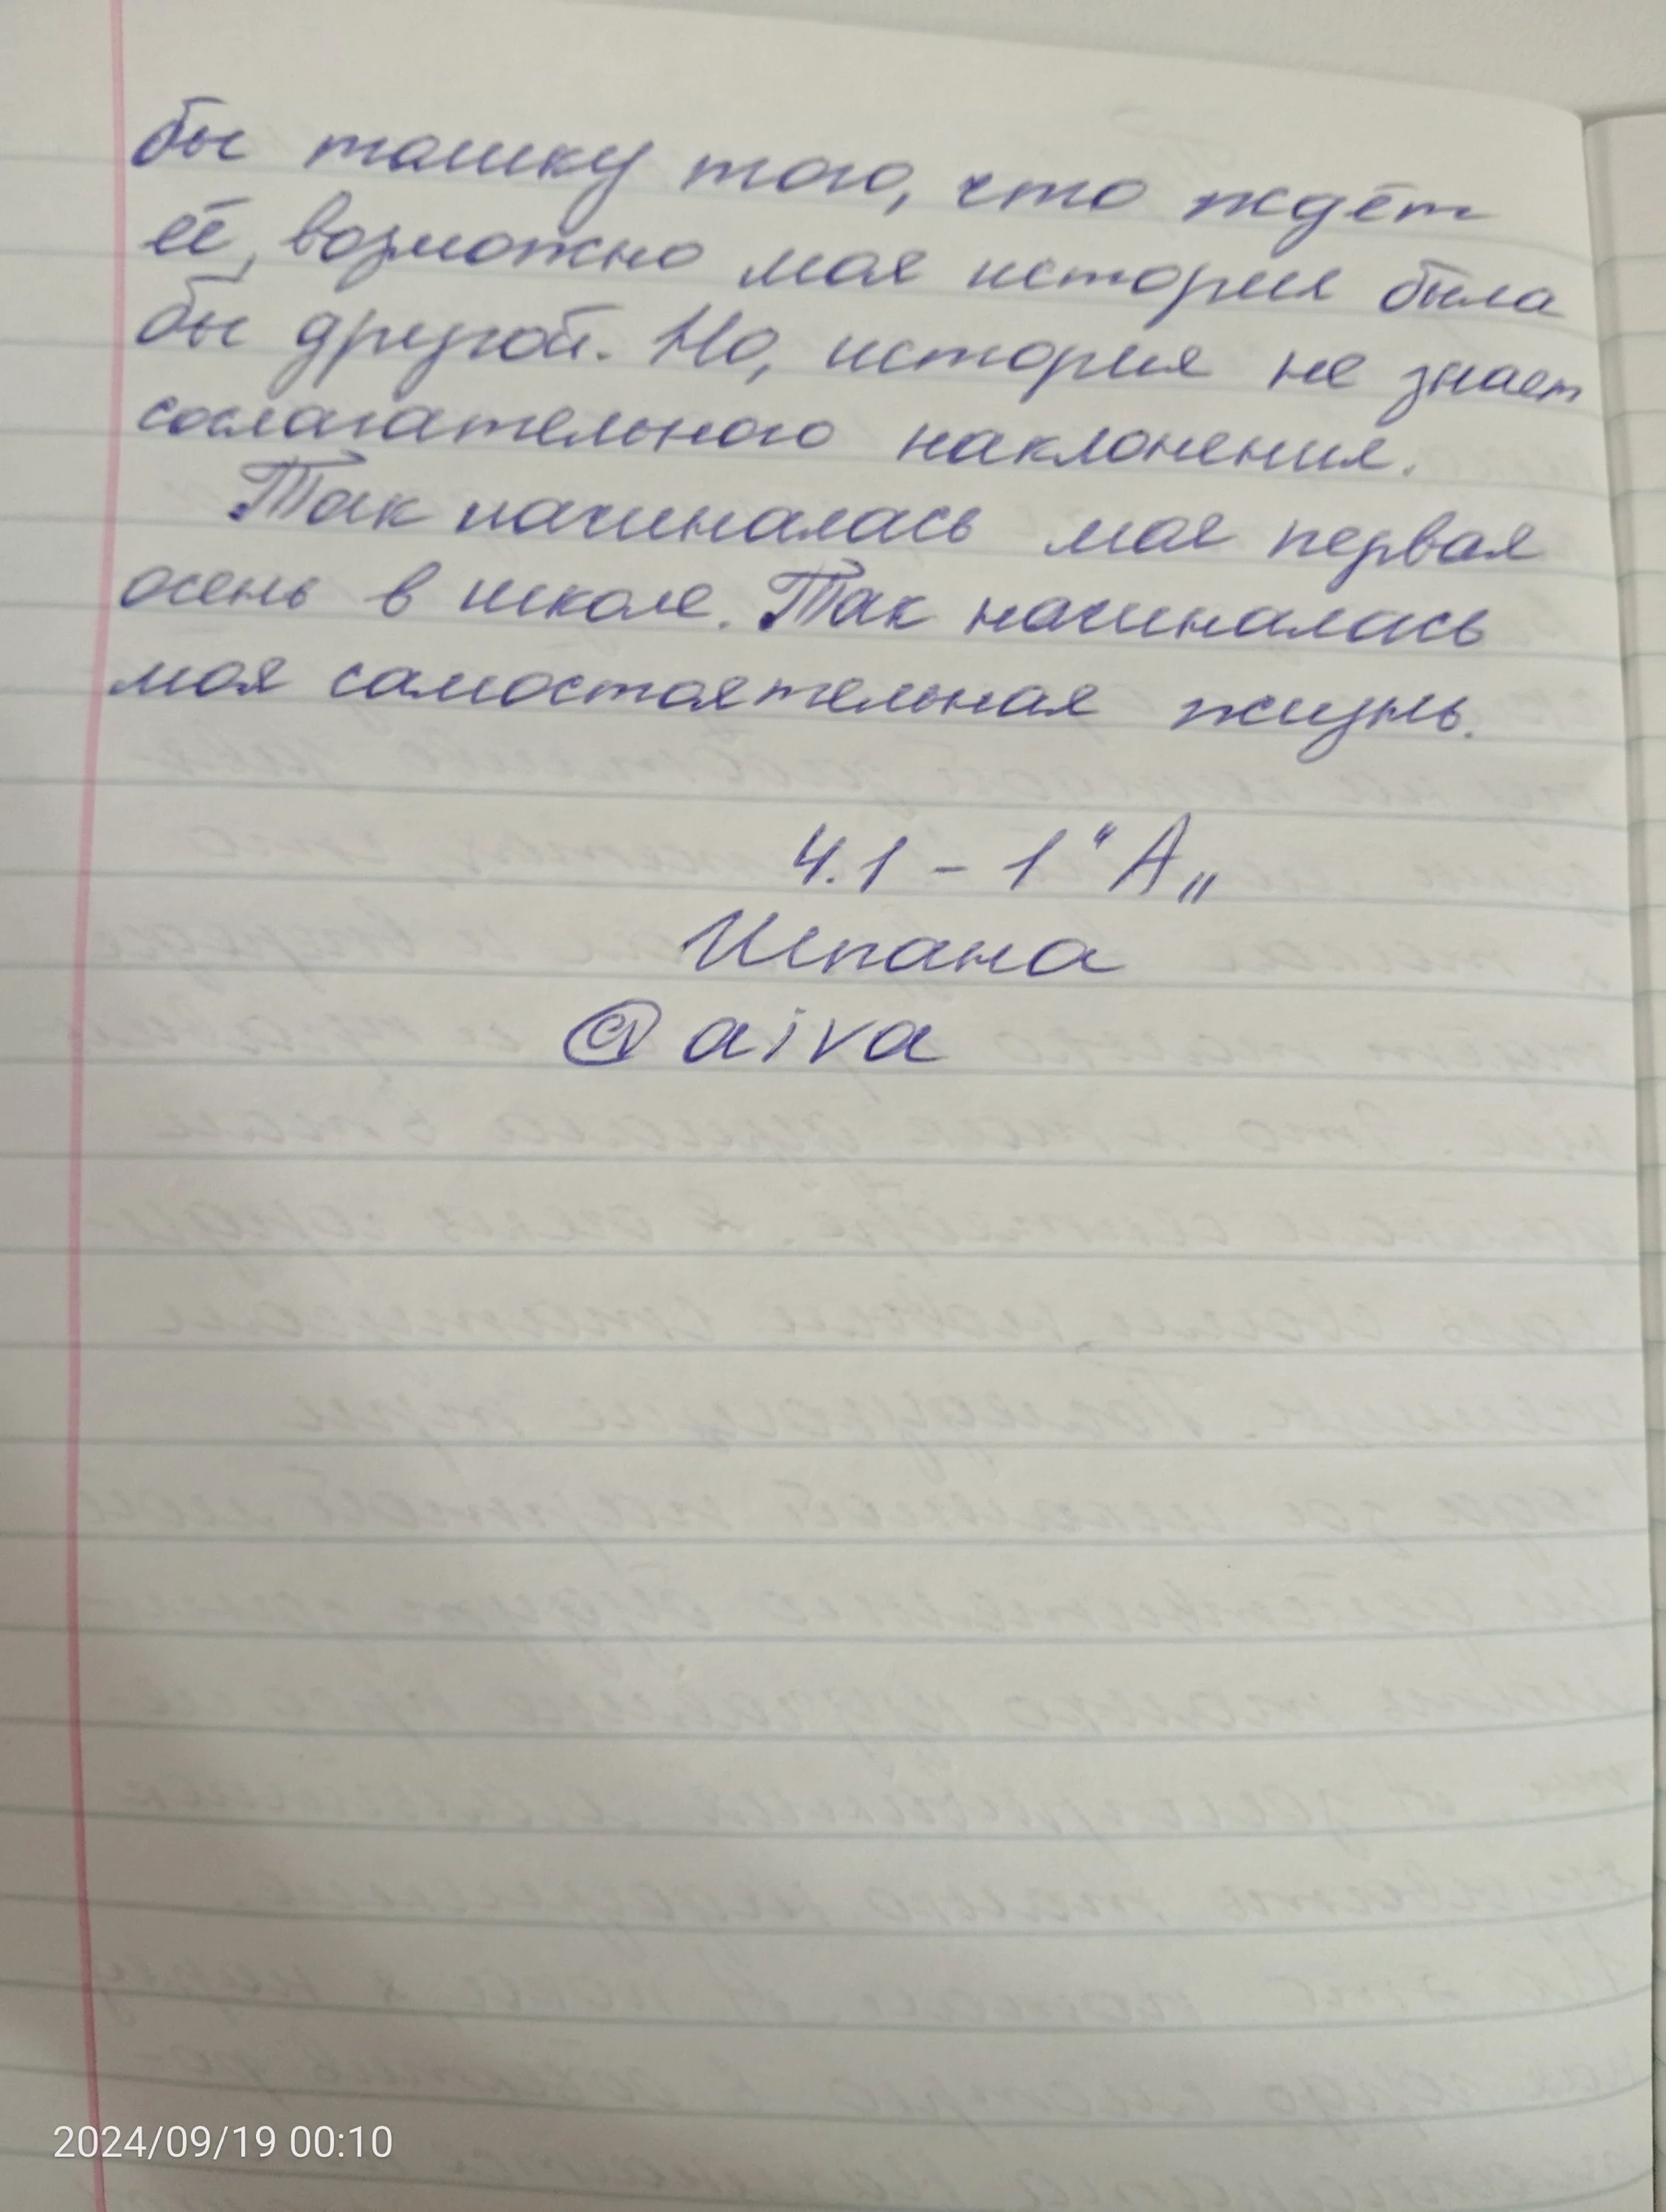 бы тошку того, что ждёт
её, возможно моя история была
бы другой. Но, история не знает
сослагательного наклонения.
Так начиналась моя первая
осень в школе. Так начиналась
моя самостоятельная жизнь.
Ч.1 - 1 "А„
Шпана
@aiva
2024/09/19 00:10